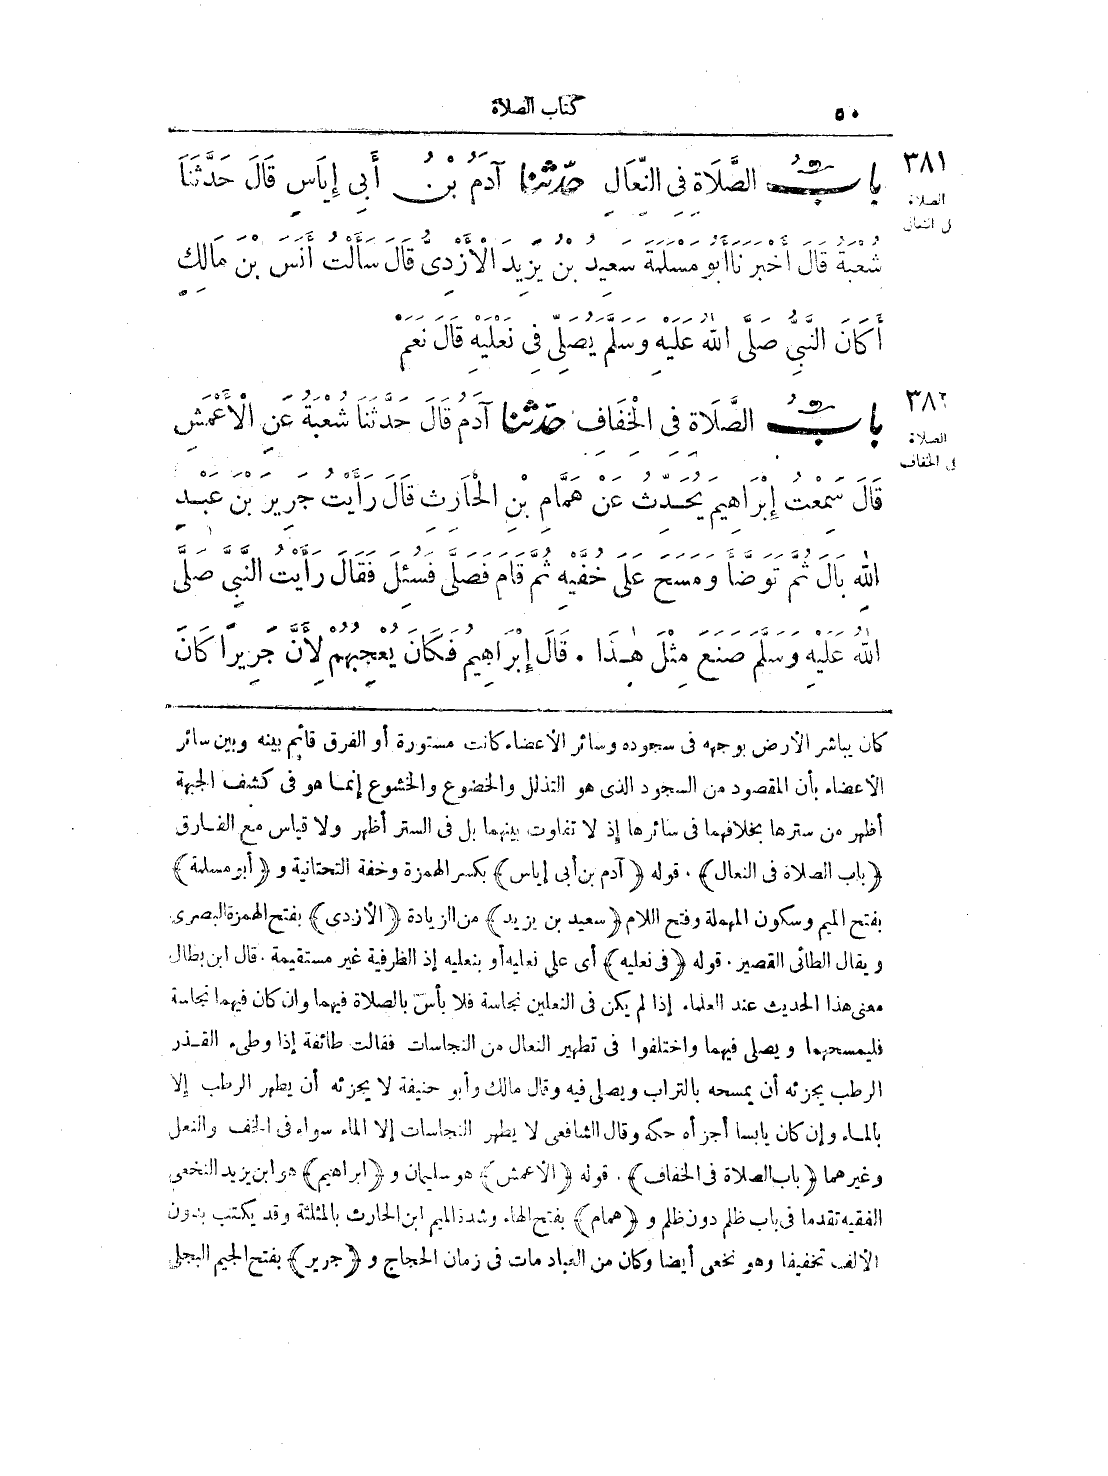 ٥٠ كتاب الصلاة
٣٨١ بابُ الصَّلَاةِ فِى النِّعَالِ حدّثنا آدَمُ بْنُ أَبِى إِيَاسٍ قَالَ حَدَّثَنَا
الصلاة
فى النعال
شُعْبَةُ قَالَ أَخْبَرَنَا أَبُو مَسْلَمَةَ سَعِيدُ بْنُ يَزِيدَ الْأَزْدِىُّ قَالَ سَأَلْتُ أَنَسَ بْنَ مَالِكٍ
أَكَانَ النَّبِىُّ صَلَّى اللهُ عَلَيْهِ وَسَلَّمَ يُصَلِّى فِى نَعْلَيْهِ قَالَ نَعَمْ
٣٨٢ بابُ الصَّلَاةِ فِى الْخِفَافِ حدّثنا آدَمُ قَالَ حَدَّثَنَا شُعْبَةُ عَنِ الْأَعْمَشِ
الصلاة
فى الخفاف
قَالَ سَمِعْتُ إِبْرَاهِيمَ يُحَدِّثُ عَنْ هَمَّامِ بْنِ الْحَارِثِ قَالَ رَأَيْتُ جَرِيرَ بْنَ عَبْدِ
اللهِ بَالَ ثُمَّ تَوَضَّأَ وَمَسَحَ عَلَى خُفَّيْهِ ثُمَّ قَامَ فَصَلَّى فَسُئِلَ فَقَالَ رَأَيْتُ النَّبِىَّ صَلَّى
اللهُ عَلَيْهِ وَسَلَّمَ صَنَعَ مِثْلَ هٰذَا . قَالَ إِبْرَاهِيمُ فَكَانَ يُعْجِبُهُمْ لِأَنَّ جَرِيرًا كَانَ
كان يباشر الأرض بوجهه فى سجوده وسائر الأعضاء كانت مستورة أو الفرق قائم بينه وبين سائر
الأعضاء بأن المقصود من السجود الذى هو التذلل والخضوع والخشوع إنما هو فى كشف الجبهة
أظهر من سترها بخلافهما فى سائرها إذ لا تفاوت بينهما بل فى الستر أظهر ولا قياس مع الفارق
﴿باب الصلاة فى النعال﴾ . قوله ﴿آدم بن أبى إياس﴾ بكسر الهمزة وخفة التحتانية و ﴿أبو مسلمة﴾
بفتح الميم وسكون المهملة وفتح اللام ﴿سعيد بن يزيد﴾ من الزيادة ﴿الأزدى﴾ بفتح الهمزة البصرى
ويقال الطائى القصير . قوله ﴿فى نعليه﴾ أى على نعليه أو بنعليه إذ الظرفية غير مستقيمة . قال ابن بطال
معنى هذا الحديث عند العلماء إذا لم يكن فى النعلين نجاسة فلا بأس بالصلاة فيهما وان كان فيهما نجاسة
فليمسحهما ويصلى فيهما واختلفوا فى تطهير النعال من النجاسات فقالت طائفة إذا وطىء القذر
الرطب يجزئه أن يمسحه بالتراب ويصلى فيه وقال مالك وأبو حنيفة لا يجزئه أن يطهر الرطب إلا
بالماء وإن كان يابسا أجزأه حكه وقال الشافعى لا يطهر النجاسات إلا الماء سواء فى الخف والنعل
وغيرهما ﴿باب الصلاة فى الخفاف﴾ . قوله ﴿الأعمش﴾ هو سليمان و ﴿ابراهيم﴾ هو ابن يزيد النخعى
الفقيه تقدما فى باب ظلم دون ظلم و ﴿همام﴾ بفتح الهاء وشدة الميم ابن الحارث بالمثلثة وقد يكتب بدون
الألف تخفيفا وهو نخعى أيضا وكان من العباد مات فى زمان الحجاج و ﴿جرير﴾ بفتح الجيم البجلى